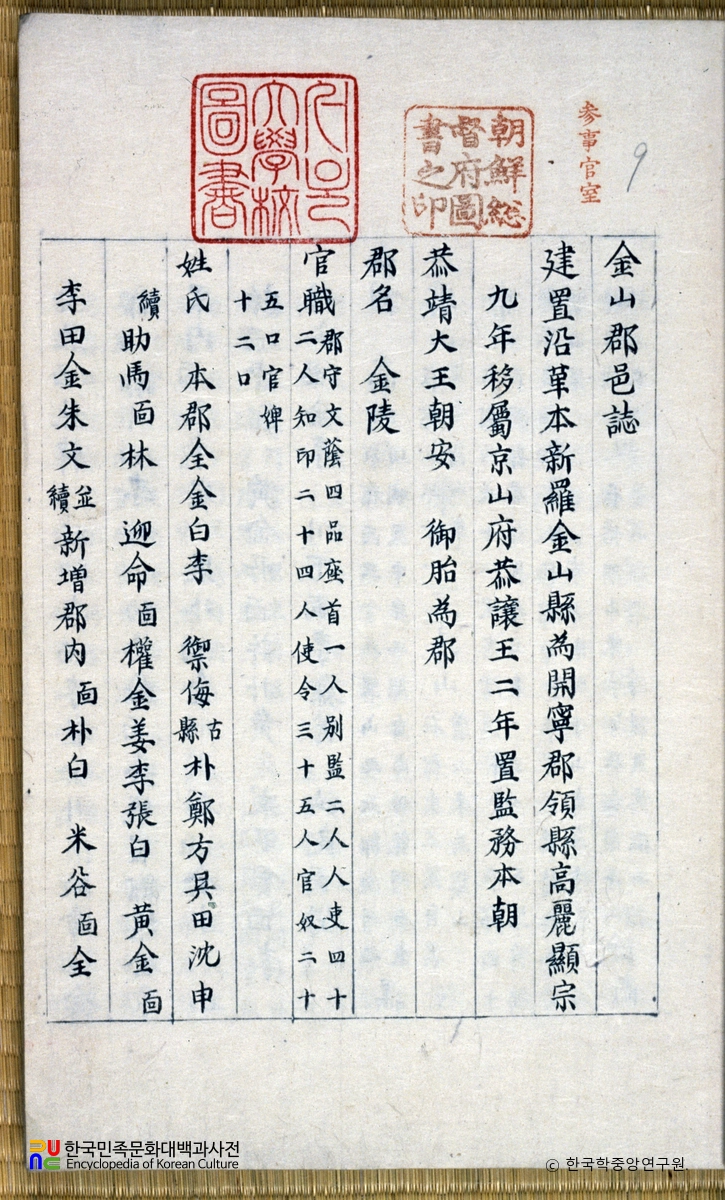 9
参事官室
朝鮮総
督府圖
書之印
서울
大學校
圖書
金山郡邑誌
建置沿革本新羅金山縣為開寧郡領縣高麗顯宗
九年移屬京山府恭讓王二年置監務本朝
恭靖大王朝安 御胎為郡
郡名 金陵
官職 郡守文蔭四品座首一人別監二人人吏四十
二人知印二十四人使令三十五人官奴二十
五口官婢
十二口
姓氏 本郡全金白李 禦侮古縣朴鄭方具田沈申
續助馬面林 迎命面權金姜李張白 黃金面
李田金朱文並續新增郡內面朴白 米谷面全
한국민족문화대백과사전
Encyclopedia of Korean Culture
© 한국학중앙연구원.